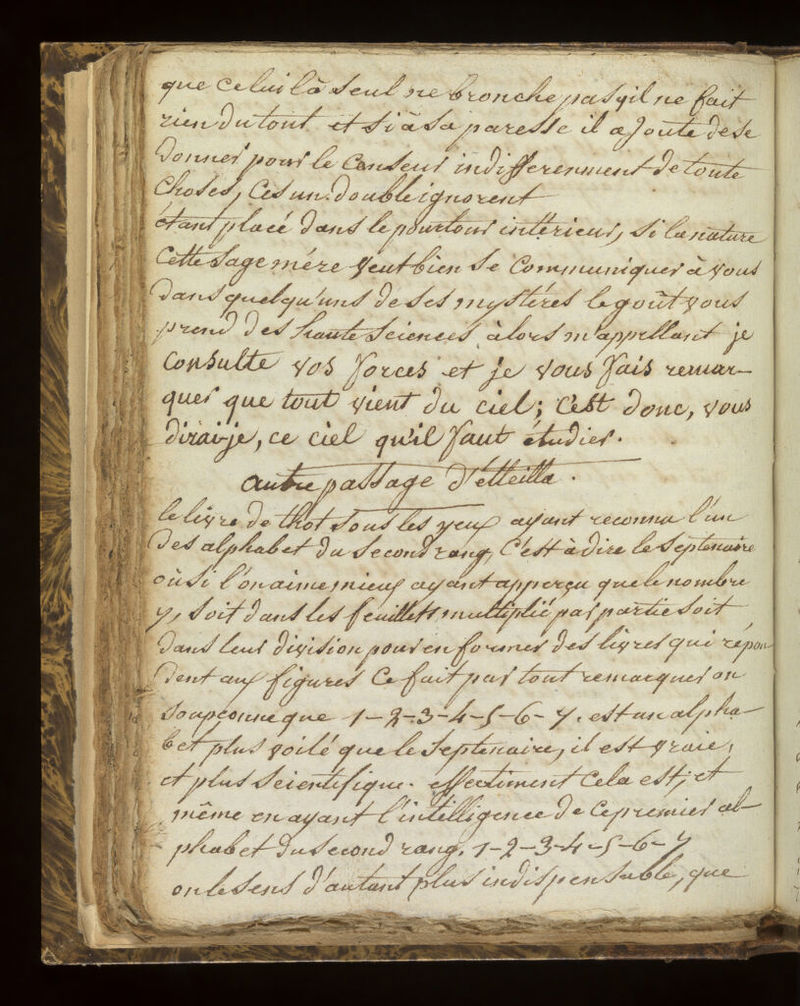 que celui là seul ne bronche pas qil ne fait
rien du tout et si à sa paresse il ajoute de se
donner pour le Censeur indifferenment de toute
choses, Ces un double ignorent
étant placé dans le pourtour intérieur, si la nature
Cette sage mére veut bien se Communiquer à vous
dans quelqu'uns de ses mystéres le goût vous
prend des haute sciences, àlors m'appellant je
Consulte vos forces et je vous fais remar-
quer que tout vient du ciel; C'est donc, vous
dirai-je, ce ciel qu'il faut étudier.
autre passage d'etteilla.
le livre de thot sous les yeux ayant reconnu l'un
des alphabet du second rang, C'est à dire le septenaire
où si l'on aime mieux ayant apperçu que le nombre
7, soit dans les feuillets multiplié par partie soit
dans leur division pour en former des livres qui répon-
dent aux figures Ce fait par tout remarquer on
soupçonne que 1-2-3-4-5-6-7. est un alpha-
bet plus voilé que le septenaire, il est vraie,
et plus scientifique. effectiment Cela est, et
même en ayant l'intelligence de Ce premier al-
phabet du second rang. 1-2-3-4-5-6-7
on le sens d'autant plus indispensable, que